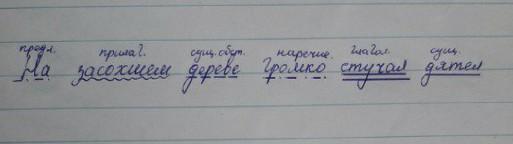 предл. прилаг. сущ.обст. наречие. глагол. сущ.
На засохшем дереве громко стучал дятел